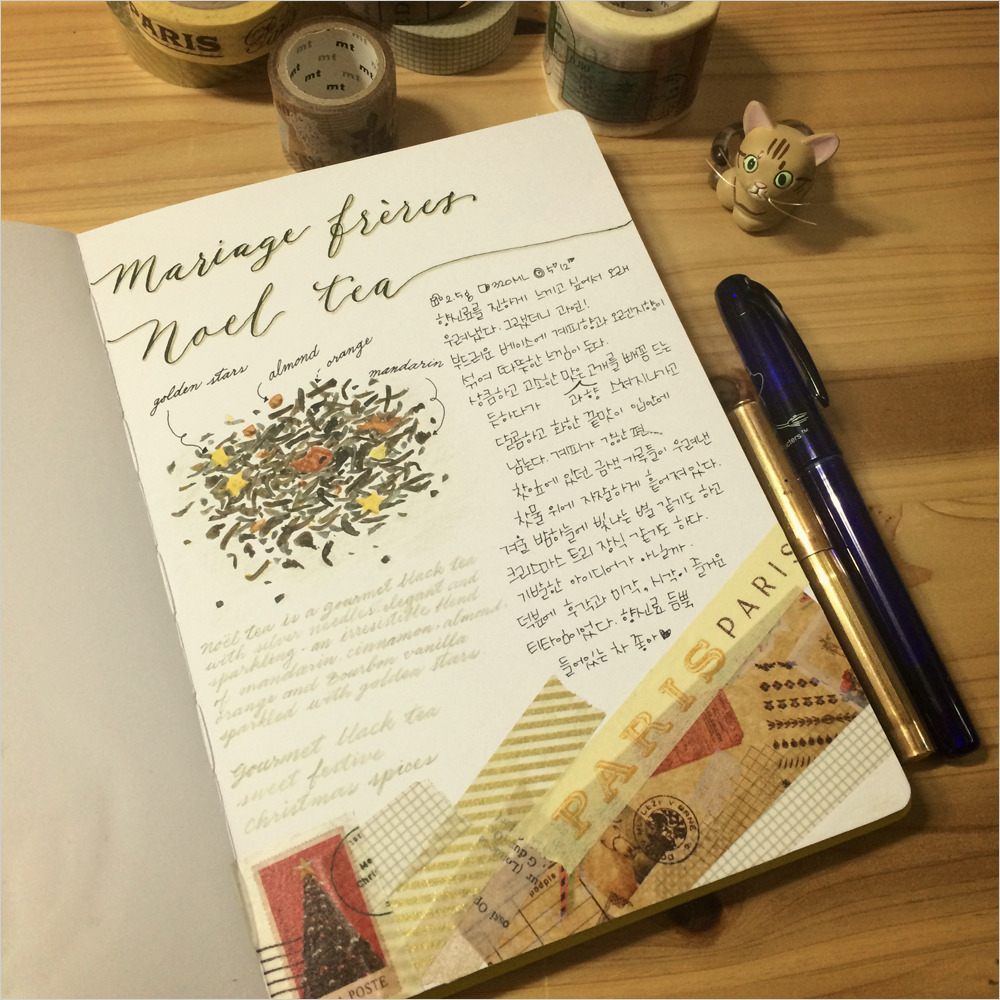 PARIS
mt mt
mt mt mt
Mariage frères
Noel tea
2.5g 320ML 5"12"
향신료를 진하게 느끼고 싶어서 오래
우려냈다. 그랬더니 과연!
부드러운 베이스에 계피향과 오렌지향이
섞여 따뜻한 느낌이 든다.
상큼하고 고소한 맛은 고개를 빼꼼 드는
듯하다가 과향 스쳐지나가고
달콤하고 화한 끝맛이 입안에
남는다. 계피가 강한 편
찻잎에 있던 금색 가루들이 우려낸
찻물 위에 자잘하게 흩어져있다.
겨울 밤하늘에 빛나는 별 같기도 하고
크리스마스 트리 장식 같기도 하다.
기발한 아이디어가 아닐까.
덕분에 후각과 미각, 시각이 즐거운
티타임이었다. 향신료 듬뿍
들어있는 차 좋아♥
golden stars
almond
orange
mandarin
noël tea is a gourmet black tea
with silver needles, elegant and
sparkling - an irresistible blend
of mandarin, cinnamon, almond,
orange and Bourbon vanilla
sparkled with golden stars
gourmet black tea
sweet festive
christmas spices
PARIS
PARIS
POSTE
podpis